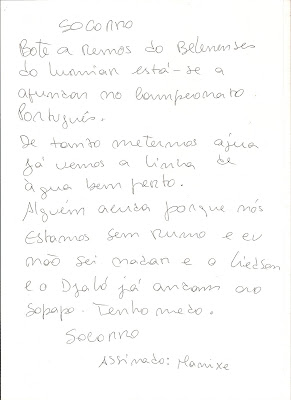 SOCORRO
Bote a Remos do Belenenses
do Lumiar está-se a
afundar no Campeonato
Português.
De tanto metermos água
já vemos a linha de
água bem perto.
Alguém acuda porque nós
estamos sem rumo e eu
não sei nadar e o Liedson
e o Djaló já andam ao
sopapo. Tenho medo.
SOCORRO
Assinado: Manixe